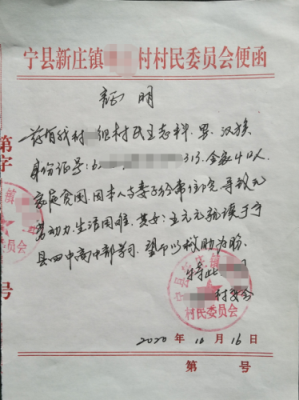 宁县新庄镇 村村民委员会便函
证明
兹有我村 组村民王志科，男，汉族，
身份证号：6 313，全家4口人，
家庭贫困，因本人与妻子经常住院，导致无
劳动力，生活困难，其女：王元元就读于宁
县四中高中部学习，望予以救助为盼。
特此
村委会
宁县 镇
村民委员会
2020 年 10 月 16 日
第 号
第 字
号